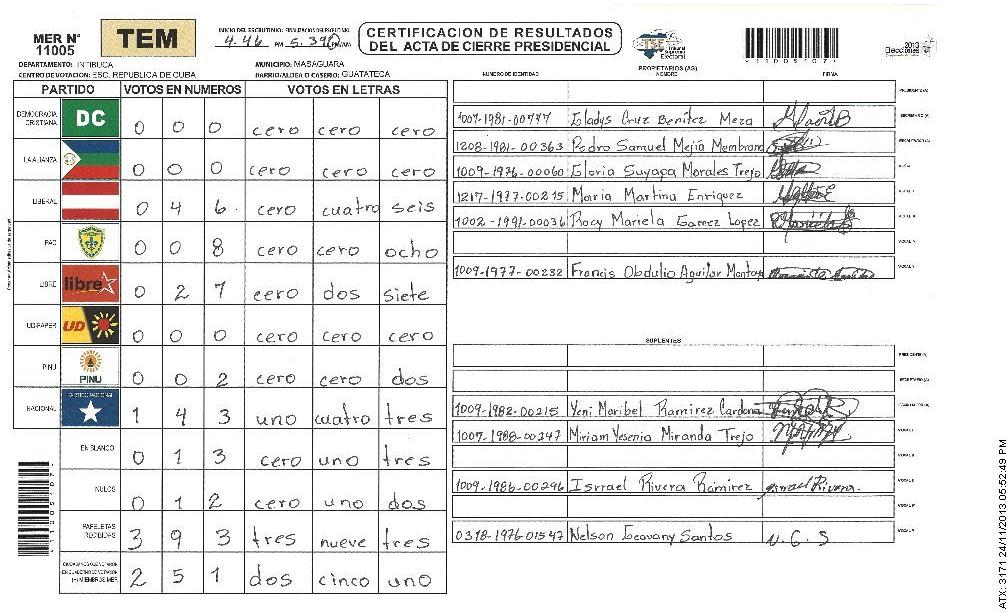 MER N° 11005
TEM
INICIO DEL ESCRUTINIO: 4.46 PM
5.39 PM/AM
CERTIFICACION DE RESULTADOS
DEL ACTA DE CIERRE PRESIDENCIAL
TSE Tribunal Supremo Electoral
2013
Elecciones
110051071
DEPARTAMENTO: INTIBUCA
MUNICIPIO: MASAGUARA
CENTRO DE VOTACION: ESC. REPUBLICA DE CUBA
BARRIO/ALDEA O CASERIO: GUATATECA
PROPIETARIOS (AS)
NUMERO DE IDENTIDAD NOMBRE FIRMA
PARTIDO VOTOS EN NUMEROS VOTOS EN LETRAS
DEMOCRACIA CRISTIANA DC 0 0 0 cero cero cero
LA ALIANZA 0 0 0 cero cero cero
LIBERAL 0 4 6 cero cuatro seis
PAC 0 0 8 cero cero ocho
LIBRE libre 0 2 7 cero dos siete
UD-FAPER UD 0 0 0 cero cero cero
PINU PINU 0 0 2 cero cero dos
NACIONAL PARTIDO NACIONAL 1 4 3 uno cuatro tres
EN BLANCO 0 1 3 cero uno tres
NULOS 0 1 2 cero uno dos
PAPELETAS RECIBIDAS 3 9 3 tres nueve tres
CIUDADANOS QUE VOTARON EN CUADERNO DE VOTACION (+) MIEMBROS MER 2 5 1 dos cinco uno
PRESIDENTE (A)
1007-1981-00777 Gladys Cruz Benitez Meza SECRETARIO (A)
1208-1981-00363 Pedro Samuel Mejia Membram ESCRUTADOR (A)
1009-1976-00060 Gloria Suyapa Morales Trejo
1217-1977-00215 Maria Martina Enriquez
1002-1991-00036 Rocy Mariela Gamez Lopez
1009-1977-00232 Francis Obdulio Aguilar Montoya
SUPLENTES
PRESIDENTE (A)
SECRETARIO (A)
1009-1982-00215 Yeni Maribel Ramirez Cardona ESCRUTADOR (A)
1007-1988-00247 Miriam Yesenia Miranda Trejo
1009-1986-00296 Isrrael Rivera Ramirez Isrrael Rivera.
0318-1976-01547 Nelson Geovany Santos N. G. S
110051071
ATX: 3171 24/11/2013 05:52:49 PM